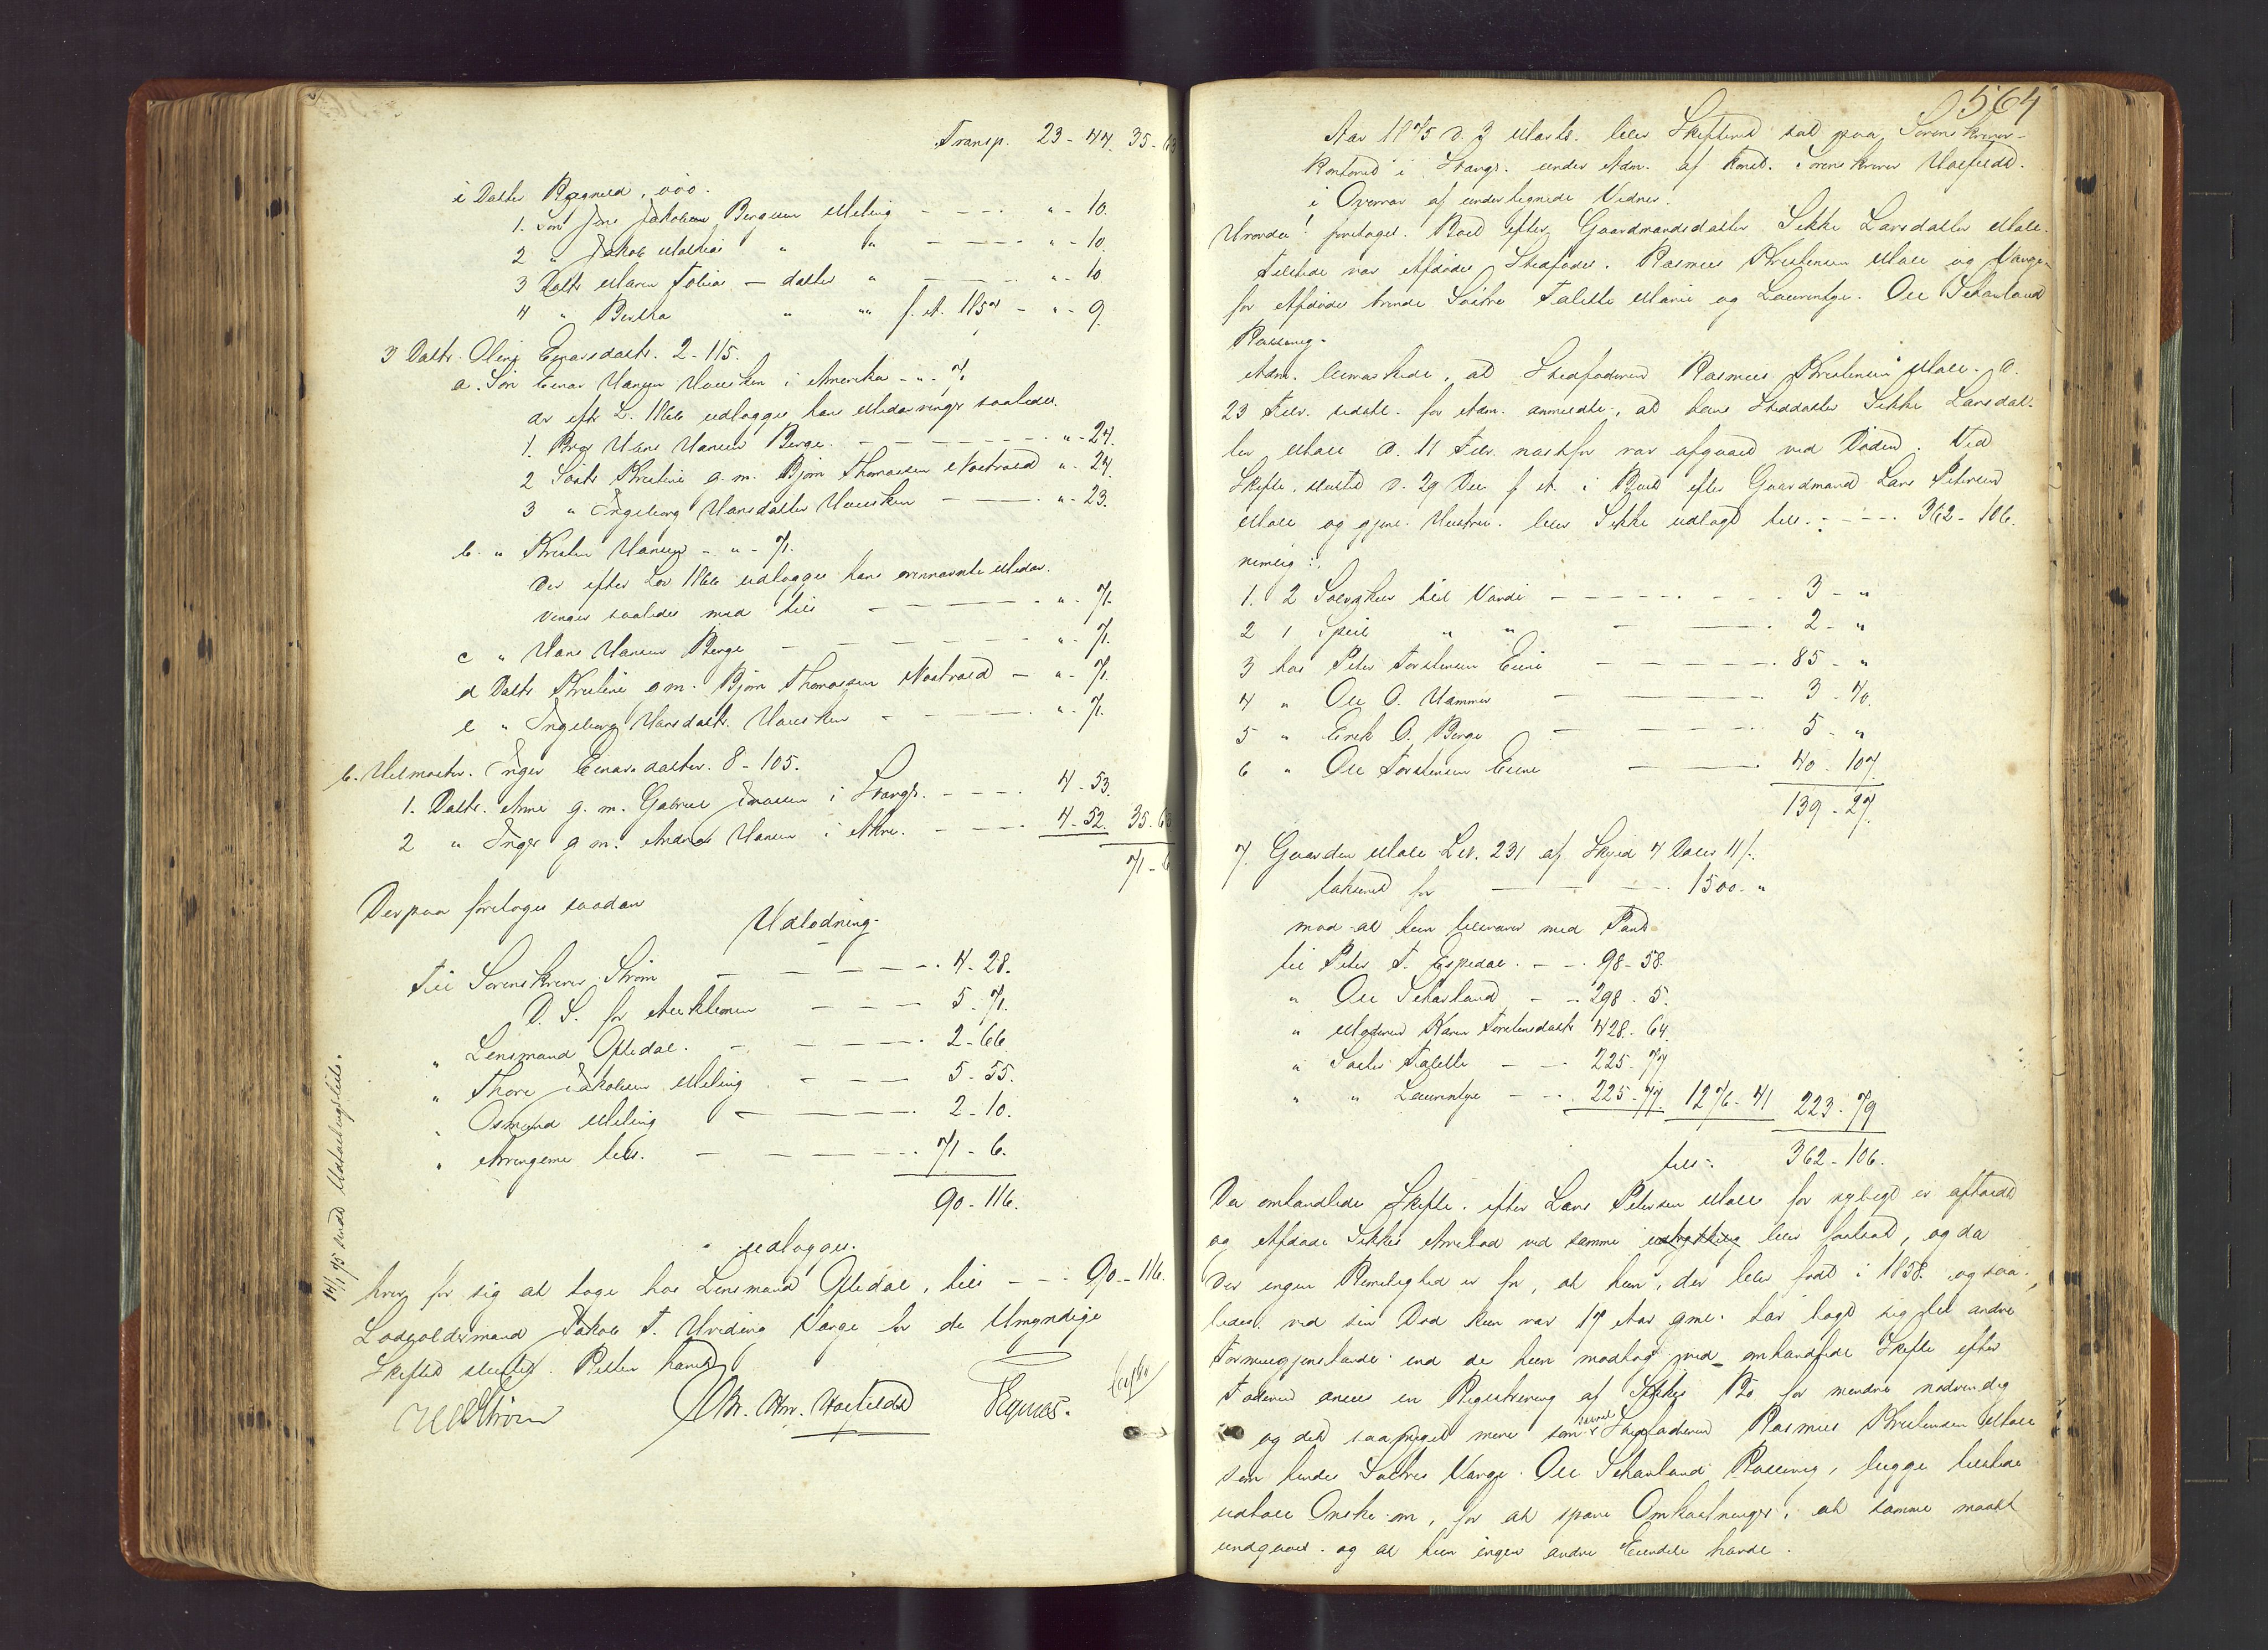 Transp. 23 - 44. 35 - 63
i Datter Ragnild, ººº.
1. Søn Jone Jakobsen Bergsen Meling - - - - " - 10.
2 " Jakob Mathias " " - - - - " - 10.
3 Dattr Maren Tobia - datter " - - - - " - 10
4 " Bertha " " f. A. 115 - " - 9.
3 Dattr. Oline Einarsdattr. 2 - 115.
a. Søn Einar Hansen Hausken i Amerika - " - 71
der eftr L. 1866 udlægges hans Medarvinger saaledes.
1. Bror Hans Hansen Berge. - - - - " - 24.
2 Søstr Kristine g. m. Bjørn Thomassen Nostvold " - 24
3 " Ingeborg Hansdatter Hausken - - - " - 23.
b. " Kristen Hansen - " - 71.
Der efter Lov 1866 udlægges hans ovennævnte Medar-
vinger saaledes med tils - - - - " - 71.
c " Hans Hansen Berge - - - - " - 71.
d Dattr Kristine g m. Bjørn Thomassen Nostvold - " - 71.
e " Ingeborg Hansdattr. Hausken - - - - " - 71.
b. Helsøster. Inger Einarsdatter. 8 - 105.
1. Dattr. Anne g. m. Gabriel Jonassen i Stavgr. - - - - 4 - 53.
2 " Inger g m. Andreas Hansen i Akre. - - - - 4 - 52. 35 - 63
71 - 6
Derpaa foretoges saadan
Udlodning-
Til Sorenskriver Strøm - - - - 4 - 28.
D. S. for Auktionen - - - 5 - 71.
" Lensmand Oftedal. - - - - 2 - 66
" Thore Jakobsen Meling - - - 5 - 55.
" Osmund Meling - - - - 2 - 10.
" Arvingerne tils. - - - - 71 - 6.
90 - 116.
udlægges.
hver for sig at tage hos Lensmand Oftedal, tils - - - 90 - 116.
Laugværgemand Jakob T. Hviding Værge for de Umyndige
Skiftet sluttet. Retten hævet
Strøm Chr. Hr. Hoffeldt Rygnæs.
14/1 75 sendt Udlodningsliste.
564
Aar 1875 d. 3 Marts. blev Skifteret sat paa Sorenskriver-
kontoret i Stavgr. under Adm. af Konst. Sorenskriver Hoffeldt.
i Overvær af undertegnede Vidner.
Hvorda! foretoges. Boet efter Gaardmandsdatter Sikke Larsdatter Male.
Tilstede var Afdødes Stedfader. Rasmus Kristensen Male og Værgen
for Afdødes tvende Søstre Talette Marie og Laurentze. Ole Sekarland
Rossavig.
Adm. bemærkede, at Stedfaderen Rasmus Kristensen Male. d.
23 Febr. sidstl. for Adm. anmeldte, at hans Steddatter Sikke Larsdat-
ter Male d. 11 Febr. næstfor var afgaaet ved Døden. Ved
Skifte, sluttet d. 29 Dec f. A. i Boet efter Gaardmand Lars Petersen
Male og gjenl. Hustru. blev Sikke udlagt tils. - - - - 362 - 106.
nemlig:
1. 2 Sølvskeer til Værdi - - - - - 3 - "
2 1 Speil " " - - - 2 - "
3 hos Peter Torstensen Eiene - - - - 85 - "
4 " Ole O. Hammer - - - 3 - 40.
5 " Erik O. Berge - - - 5 - "
6 " Ole Torstensen Eiene - - 40 - 107.
139 - 27.
7. Gaarden Male L.N. 231 af Skyld 4 Daler 11 /-
takseret for - - - - 1500 - "
mod at hun tilsvarer med Pant
til Peter T. Espedal. - - - 98 - 58.
" Ole Sekarland - - - 298 - 5.
" Moderen Karen Torstensdattr 428 - 64.
" Søster Talette - - - 225 - 77
" " Laurentze - - - 225 - 77. 1276 - 41 223 - 79
tils - 362 - 106.
Da omhandlede Skifte. efter Lars Petersen Male for nyligt er afholdt
og Afdøde Sikkes Arvelod ved samme blev fastsat, og da
der ingen Rimelighed er for, at hun, der blev født i 1858. og saa-
ledes ved sin Død kun var 17 Aar gml. har lagt sig til andre
Formuesgjenstande end de hun modtog ved omhandlede Skifte efter
Faderen ansees en Registrering af Sikkes Bo for mindre nødvendig
og det saameget mere som saavel Stedfaderen Rasmus Kristensen Male
som hendes Søstres Værge. Ole Sekarland Rossavig, begge tilstede
udtale Ønske om, for at spare Omkostninger, at samme maatte
undgaaes. og at hun ingen andre Eiendele havde.